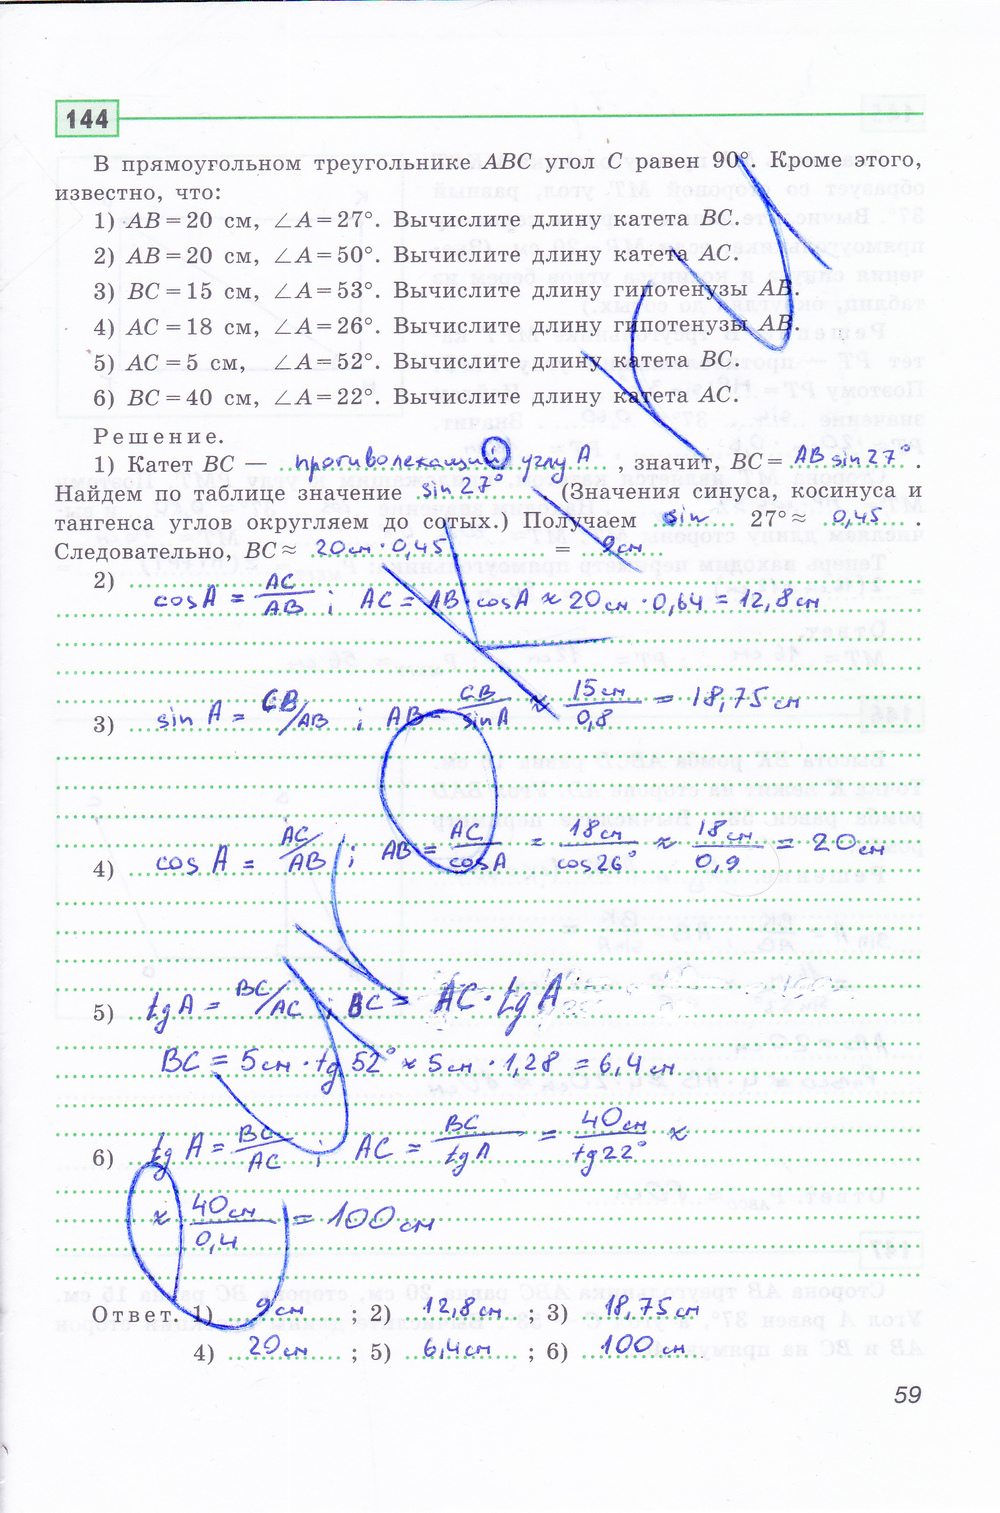 144
В прямоугольном треугольнике ABC угол C равен 90°. Кроме этого,
известно, что:
1) AB = 20 см, ∠A = 27°. Вычислите длину катета BC.
2) AB = 20 см, ∠A = 50°. Вычислите длину катета AC.
3) BC = 15 см, ∠A = 53°. Вычислите длину гипотенузы AB.
4) AC = 18 см, ∠A = 26°. Вычислите длину гипотенузы AB.
5) AC = 5 см, ∠A = 52°. Вычислите длину катета BC.
6) BC = 40 см, ∠A = 22°. Вычислите длину катета AC.
Решение.
1) Катет BC — противолежащий углу A, значит, BC = AB sin 27°.
Найдем по таблице значение sin 27° (Значения синуса, косинуса и
тангенса углов округляем до сотых.) Получаем sin 27° ≈ 0,45.
Следовательно, BC ≈ 20см · 0,45 = 9см
2) cos A = AC/AB ; AC = AB cos A ≈ 20см · 0,64 = 12,8см
3) sin A = CB/AB ; AB = CB/sin A ≈ 15см/0,8 = 18,75 см
4) cos A = AC/AB ; AB = AC/cos A = 18см/cos 26° ≈ 18см/0,9 = 20см
5) tg A = BC/AC ; BC = AC · tg A
BC = 5см · tg 52° ≈ 5см · 1,28 = 6,4см
6) tg A = BC/AC ; AC = BC/tg A = 40см/tg 22° ≈
≈ 40см/0,4 = 100см
Ответ. 1) 9см ; 2) 12,8см ; 3) 18,75см
4) 20см ; 5) 6,4см ; 6) 100см
59